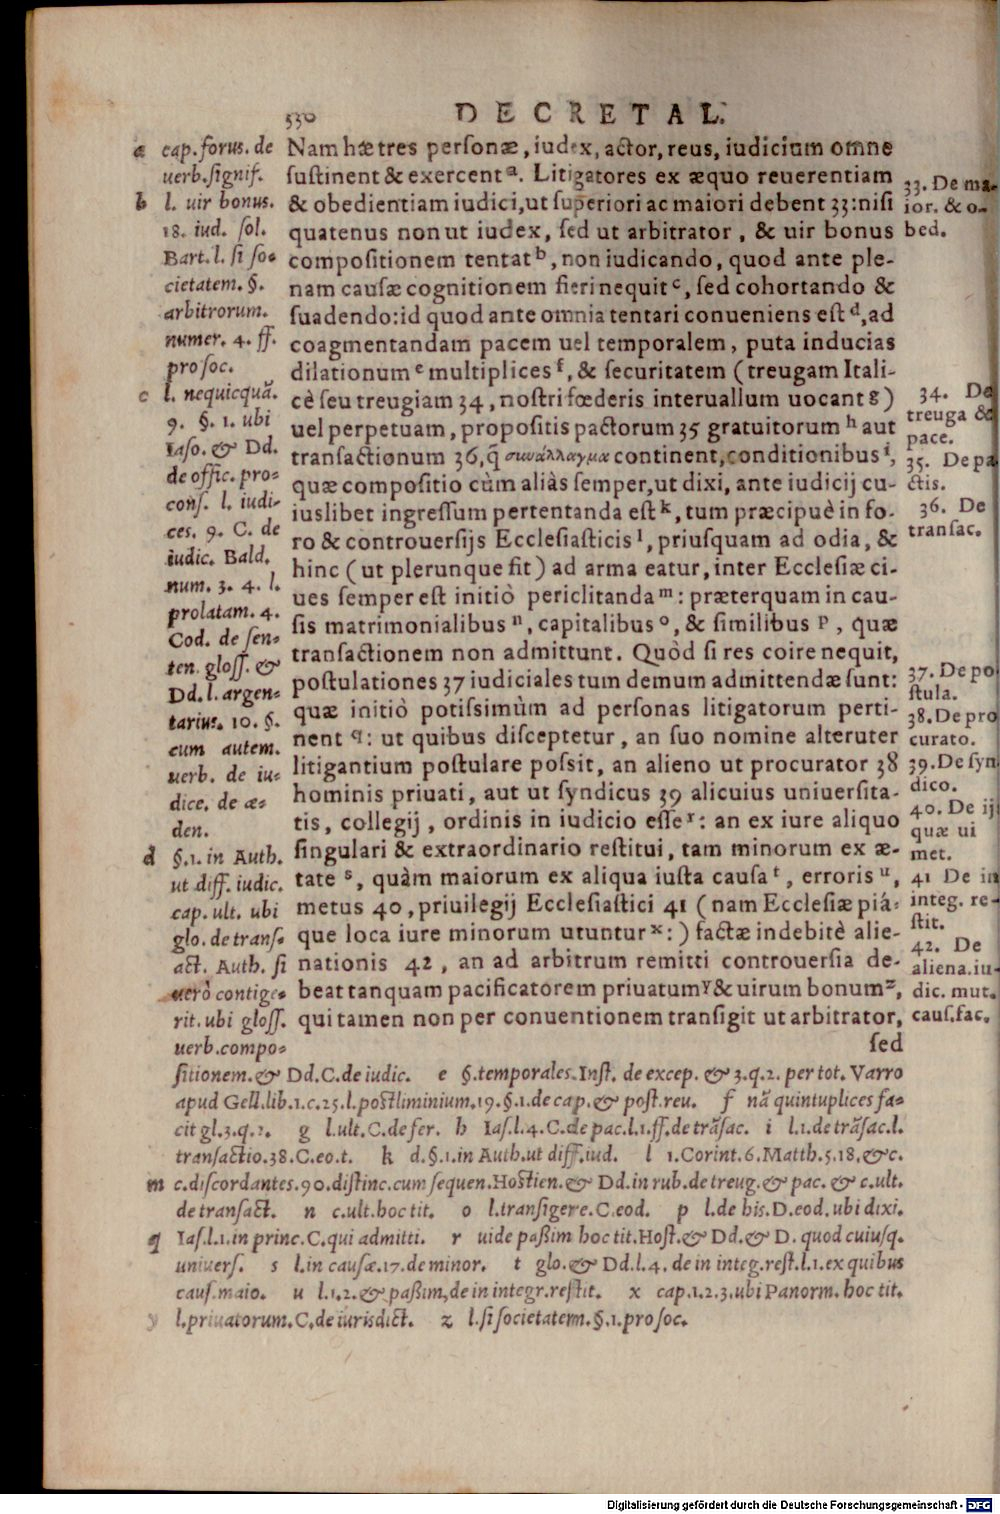 330 DECRETAL.
Nam hæ tres personæ, iudex, actor, reus, iudicium omne
sustinent & exercent a. Litigatores ex æquo reuerentiam
& obedientiam iudici, ut superiori ac maiori debent 33: nisi
quatenus non ut iudex, sed ut arbitrator, & uir bonus
compositionem tentat b, non iudicando, quod ante ple-
nam causæ cognitionem fieri nequit c, sed cohortando &
suadendo: id quod ante omnia tentari conueniens est d, ad
coagmentandam pacem uel temporalem, puta inducias
dilationum e multiplices f, & securitatem (treugam Itali-
cè seu treugiam 34, nostri fœderis interuallum uocant g)
uel perpetuam, propositis pactorum 35 gratuitorum h aut
transactionum 36, q̃ συνάλλαγμα continent, conditionibus i,
quæ compositio cùm aliàs semper, ut dixi, ante iudicij cu-
iuslibet ingressum pertentanda est k, tum præcipuè in fo-
ro & controuersijs Ecclesiasticis l, priusquam ad odia, &
hinc (ut plerunque fit) ad arma eatur, inter Ecclesiæ ci-
ues semper est initiò periclitanda m: præterquam in cau-
sis matrimonialibus n, capitalibus o, & similibus p, quæ
transactionem non admittunt. Quòd si res coire nequit,
postulationes 37 iudiciales tum demum admittendæ sunt:
quæ initiò potissimùm ad personas litigatorum perti-
nent q: ut quibus disceptetur, an suo nomine alteruter
litigantium postulare possit, an alieno ut procurator 38
hominis priuati, aut ut syndicus 39 alicuius uniuersita-
tis, collegij, ordinis in iudicio esse r: an ex iure aliquo
singulari & extraordinario restitui, tam minorum ex æ-
tate s, quàm maiorum ex aliqua iusta causa t, erroris u,
metus 40, priuilegij Ecclesiastici 41 (nam Ecclesiæ piá-
que loca iure minorum utuntur x:) factæ indebitè alie-
nationis 42, an ad arbitrum remitti controuersia de-
beat tanquam pacificatorem priuatum y & uirum bonum z,
qui tamen non per conuentionem transigit ut arbitrator,
sed
a cap. forus. de
uerb. signif.
b l. uir bonus.
18. iud. sol.
Bart. l. si so-
cietatem. §.
arbitrorum.
numer. 4. ff.
pro soc.
c l. nequicquã.
9. §. 1. ubi
Iaso. & Dd.
de offic. pro-
cons. l. iudi-
ces. 9. C. de
iudic. Bald.
num. 3. 4. l.
prolatam. 4.
Cod. de sen-
ten. gloss. &
Dd. l. argen-
tarius. 10. §.
cum autem.
uerb. de iu-
dice. de æ-
den.
d §. 1. in Auth.
ut diff. iudic.
cap. ult. ubi
glo. de trans-
act. Auth. si
uerò contige-
rit. ubi gloss.
uerb. compo-
sitionem. & Dd. C. de iudic. e §. temporales. Inst. de excep. & 3. q. 2. per tot. Varro
apud Gell. lib. 1. c. 25. l. postliminium. 19. §. 1. de cap. & post. reu. f nã quintuplices fa-
cit gl. 3. q. 2. g l. ult. C. de fer. h Ias. l. 4. C. de pac. l. 1. ff. de trãsac. i l. 1. de trãsac. l.
transactio. 38. C. eo. t. k d. §. 1. in Auth. ut diff. iud. l 1. Corint. 6. Matth. 5. 18. & c.
m c. discordantes. 90. distinc. cum sequen. Hostien. & Dd. in rub. de treug. & pac. & c. ult.
de transact. n c. ult. hoc tit. o l. transigere. C. eod. p l. de his. D. eod. ubi dixi.
q Ias. l. 1. in princ. C. qui admitti. r uide passim hoc tit. Host. & Dd. & D. quod cuiusq.
uniuers. s l. in causæ. 17. de minor. t glo. & Dd. l. 4. de in integ. rest. l. 1. ex quibus
caus. maio. u l. 1. 2. & passim, de in integr. restit. x cap. 1. 2. 3. ubi Panorm. hoc tit.
y l. priuatorum. C. de iurisdict. z l. si societatem. §. 1. pro soc.
33. De ma-
ior. & o-
bed.
34. De
treuga &
pace.
35. De pa
ctis.
36. De
transac.
37. De po
stula.
38. De pro
curato.
39. De syn
dico.
40. De ij
quæ ui
met.
41 De in
integ. re-
stit.
42. De
aliena. iu-
dic. mut.
caus. fac.
Digitalisierung gefördert durch die Deutsche Forschungsgemeinschaft - DFG